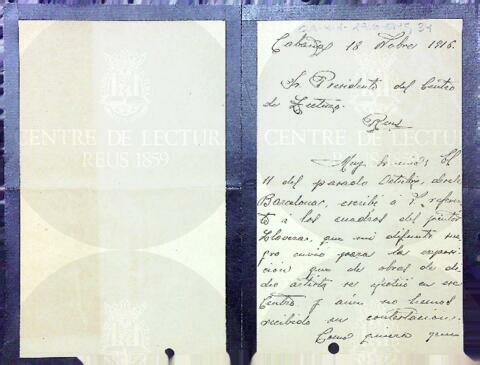 CENTRE DE LECTURA
REUS 1859
Cabañal 18 Nobre 1916.
Sr. Presidente del Centro
de Lectura.
Reus
Muy Sr. mio; El
11 del pasado Octubre, desde
Barcelona, escribí a V. referen
te á los cuadros del pintor
Lloveras, que mi difunto sue
gro envió para la exposi
cion que de obras de di
cho artista se efectuó en ese
Centro y aún no hemos
recibido su contestacion.
Como quiera que
CENTRE DE LECTURA
REUS 1859